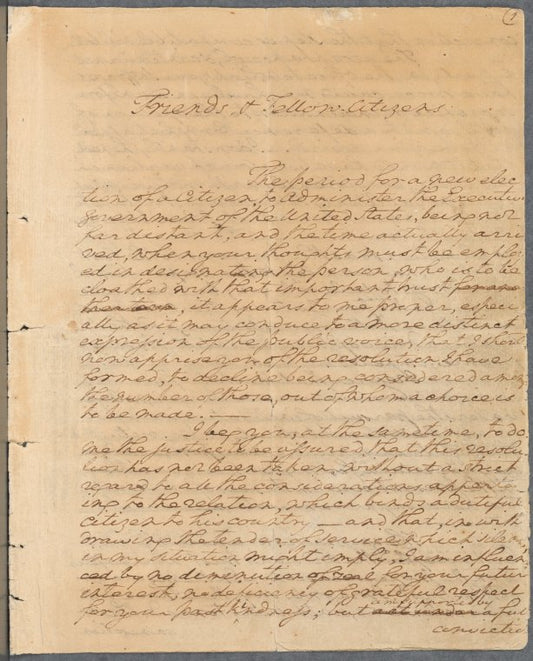 1
Friends, & Fellow-Citizens.
The period for a new elec
tion of a Citizen, to administer the Executive
government of the United States, being not
far distant, and the time actually arri
ved, when your thoughts must be employ
ed in designating the person, who is to be
cloathed with that important trust for ano
ther term, it appears to me proper, especi
ally as it may conduce to a more distinct
expression of the public voice, that I should
now apprise you of the resolution I have
formed, to decline being considered among
the number of those, out of whom a choice is
to be made. —
I beg you, at the same time, to do
me the justice to be assured, that this resolu
tion has not been taken, without a strict
regard to all the considerations appertain
ing to the relation, which binds a dutiful
citizen to his country — and that, in with
drawing the tender of service which silence
in my situation might imply, I am influen
ced by no diminution of zeal for your future
interest, no deficiency of grateful respect
for your past kindness; but
am supported by
act under a full
conviction